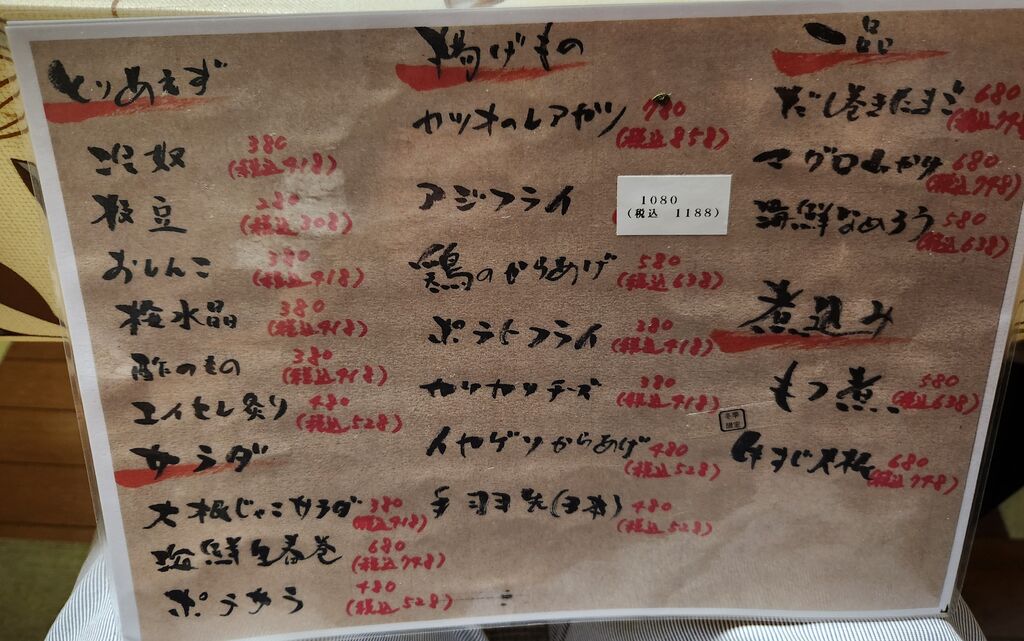 とりあえず
冷奴 380
(税込418)
枝豆 280
(税込308)
おしんこ 380
(税込418)
桜水晶 380
(税込418)
酢のもの 380
(税込418)
エイヒレ炙り 480
(税込528)
サラダ
大根じゃこサラダ 380
(税込418)
海鮮生春巻 680
(税込748)
ポテサラ 480
(税込528)
揚げもの
カツオのレアカツ 780
(税込858)
アジフライ 1080
(税込 1188)
鶏のからあげ 580
(税込638)
ポテトフライ 380
(税込418)
カリカリチーズ 380
(税込418)
イカゲソからあげ 480
(税込528)
手羽先(3本) 480
(税込528)
一品
だし巻きたまご 680
(税込748)
マグロ山かけ 680
(税込748)
海鮮なめろう 580
(税込638)
煮込み
もつ煮 580
(税込638)
冬季
限定
牛すじ大根 680
(税込748)